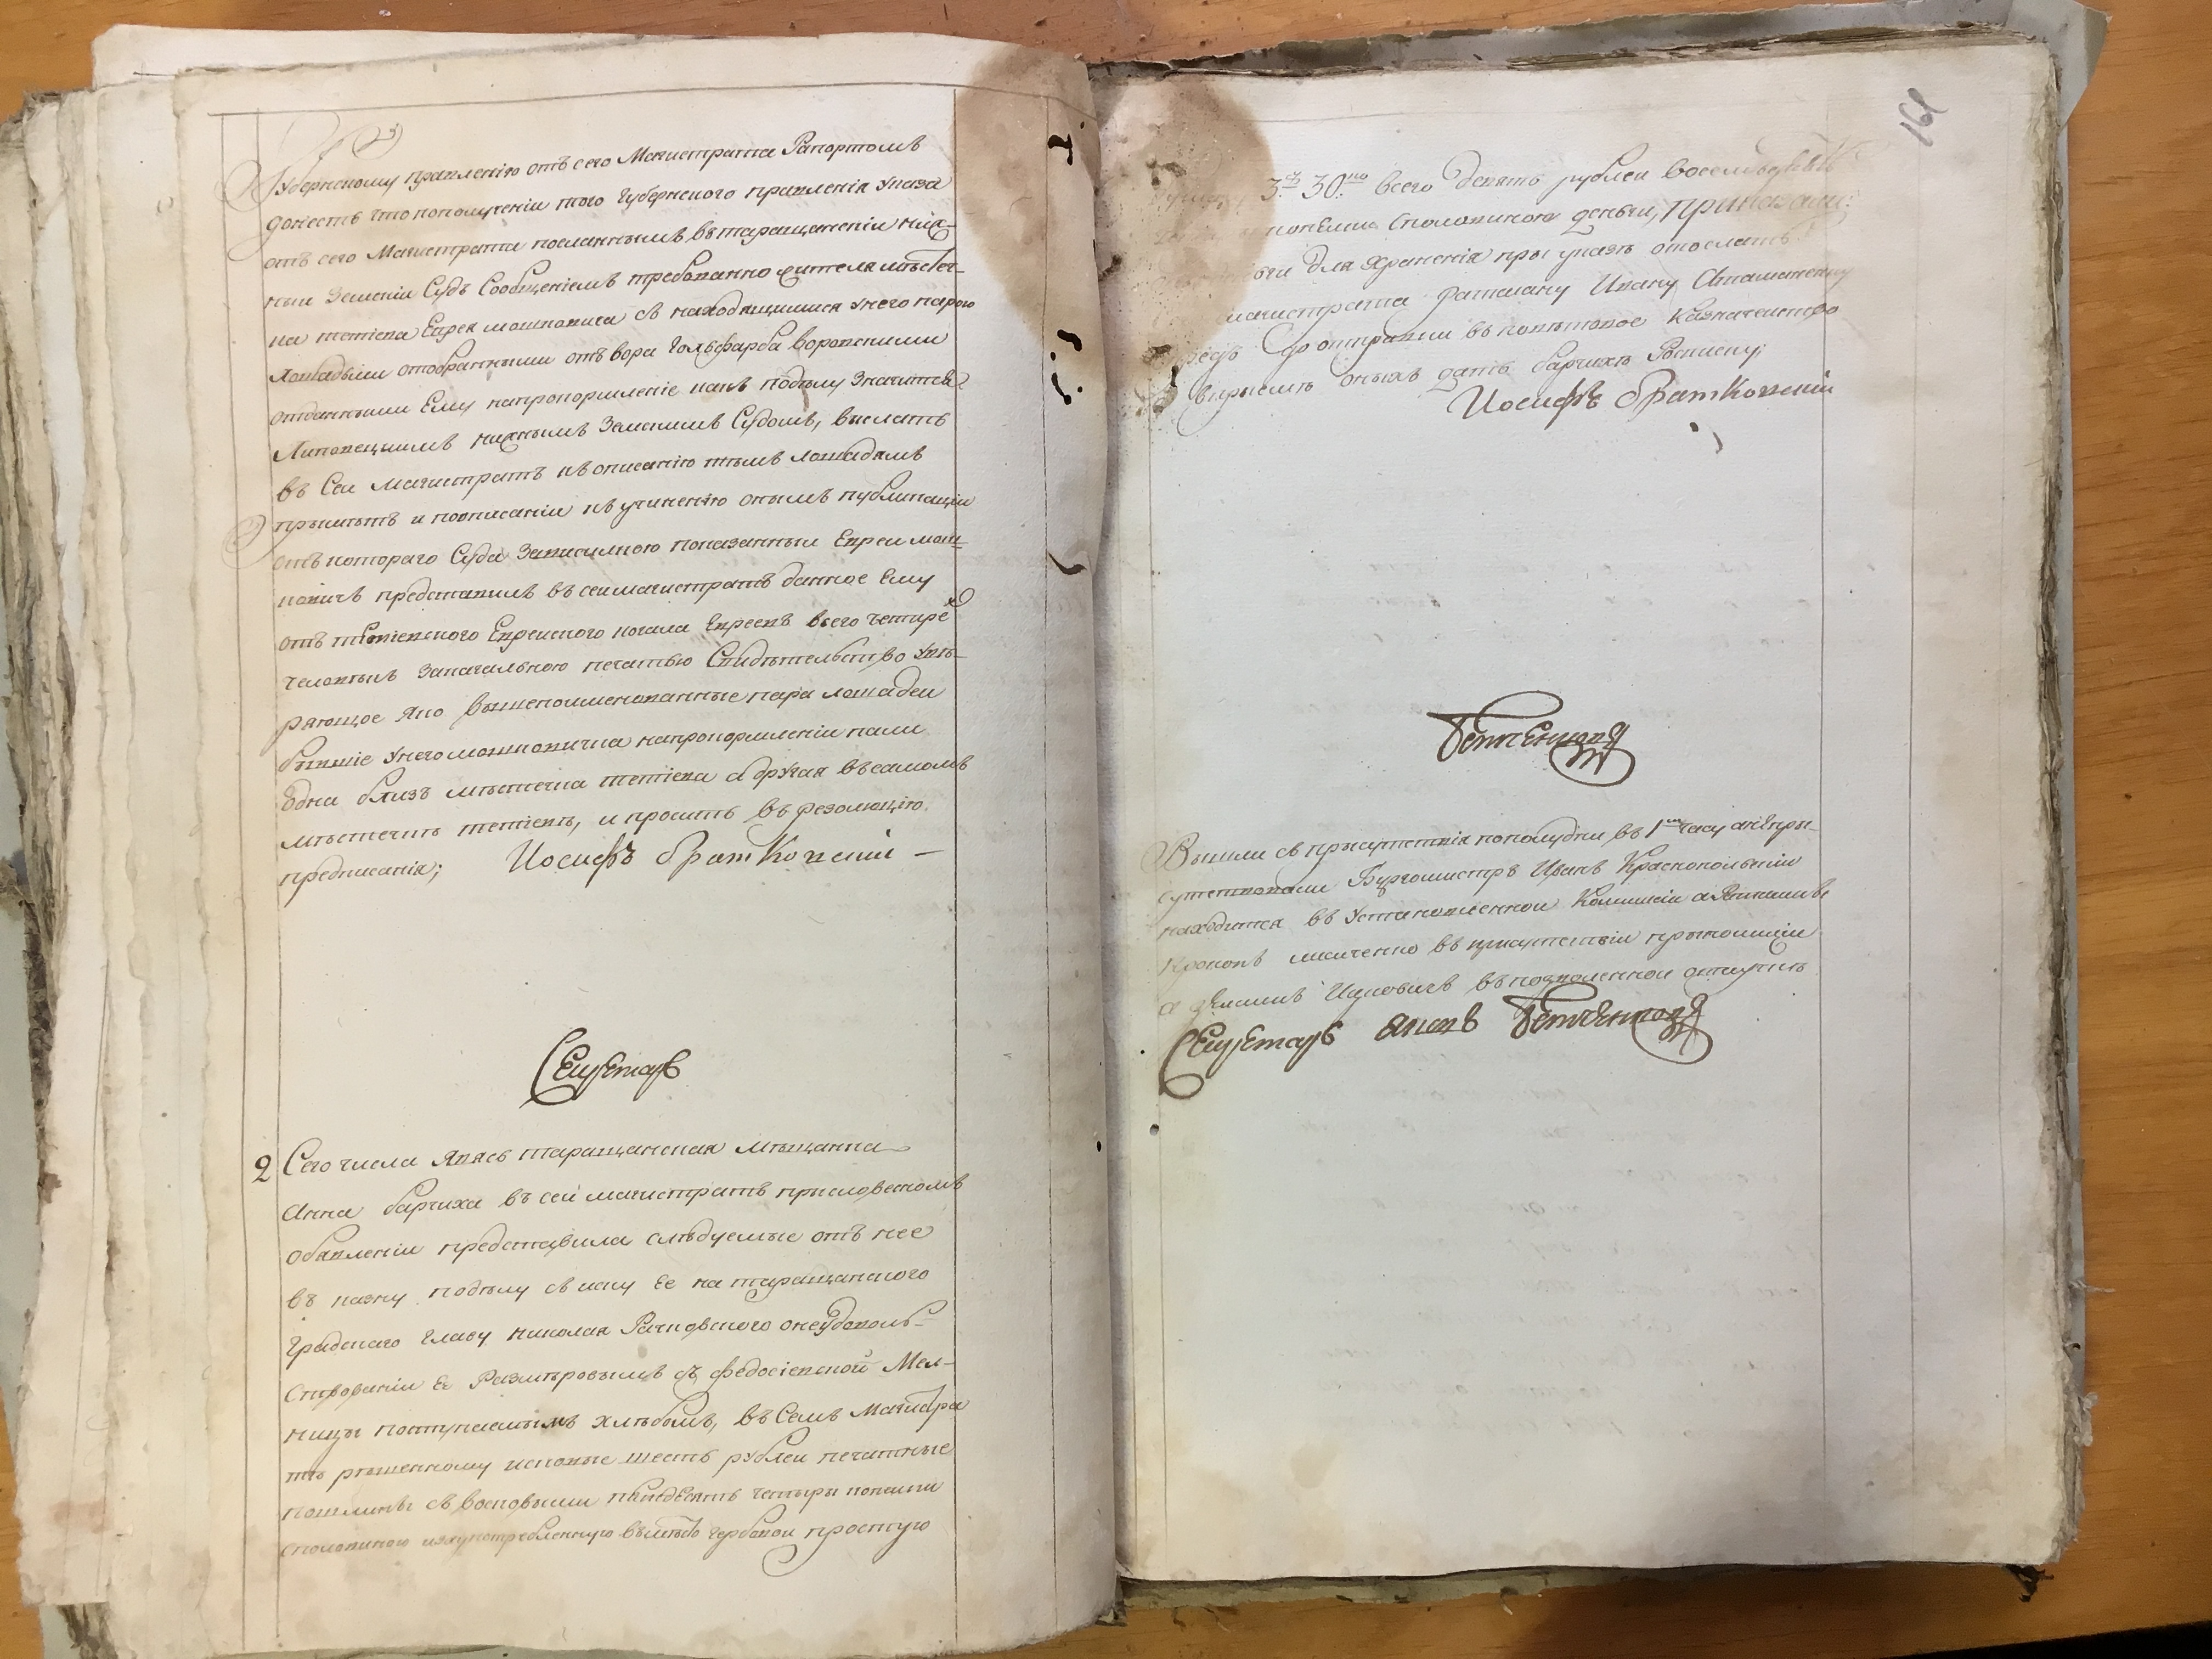 Губернскому правлению отъ сего Магистрата Рапортомъ
донесть что пополученіи того Губернского правленія указа
отъ сего Магистрата посланнымъ въ таращанскій ниж-
ный Земскій Судъ Сообщеніемъ требованно жителя мѣстеч-
ка тетіева Еврея мошковича съ находящимися унего парою
лошадьми отобранными отъ вора Гольфарба воровскими
отданными Ему напрокормленіе какъ подѣлу значится
Липовецкимъ нижнымъ Земскимъ Судомъ, выслать
въ Сей Магистратъ къ описанію тѣмъ лошадямъ
примѣтъ и поописаніи къ учиненію онымъ публикаціи
отъ котораго Суда Запискою показанный Еврей мош-
ковичъ представилъ въ сей магистратъ данное Ему
отъ тетіевского Еврейского кагала Евреевъ всего четырё
человѣкъ Закагальною печатью Свидѣтельство увѣ-
ряющое яко вышепоименованные пара лошадей
бывшіе унего мошковича напрокормленіи пали
Една близъ мѣстечка тетіева а другая въсамомъ
мѣстечкѣ тетіевѣ, и проситъ въ резолюцію
предписанія; Иосифъ братковскій
Секретарь
2 Сего числа явясь таращанская мѣщанка
Анна барчиха въ сей магистратъ присловесномъ
обявленіи представила слѣдуемые отъ нее
въ казну подѣлу съ иску Ее на таращанского
Градского главу николая Рачковского онеудоволь-
ствованіи Ее Размѣровымъ съ федосіевской Мел-
ницы поступаемымъ хлѣбомъ, въ Семъ Магистра
тѣ рѣшенному исковые шесть рублей печатные
пошлины съ восковыми пятдесятъ четыры копейки
споловиною изаупотребленную вмѣсто гербовой простую
161
3 30 всего девять рублей восемьдесятъ
копѣйки споловиною деньги, приказали:
для храненія при указѣ отослать
магистрата ратману Ивану Атаманенку
до отправки въ повѣтовое казначейство
впріемѣ оныхъ дать барчихѣ Росписку;
Иосифъ братковскій
Вышли съ присутствія пополудни въ 1 часу анепри-
сутствовали Бургомистръ Иванъ Краснопольскій
находится въ установленной Комисіи а Ратманъ
Прокопъ лисиченко въ присутствіи
а въ позволенной отпускѣ
Секретарь Яковъ